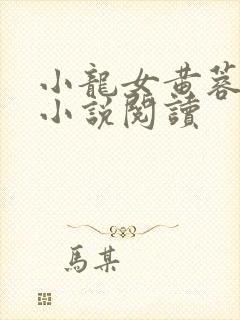 小龍女黃蓉
小說閱讀
馬某